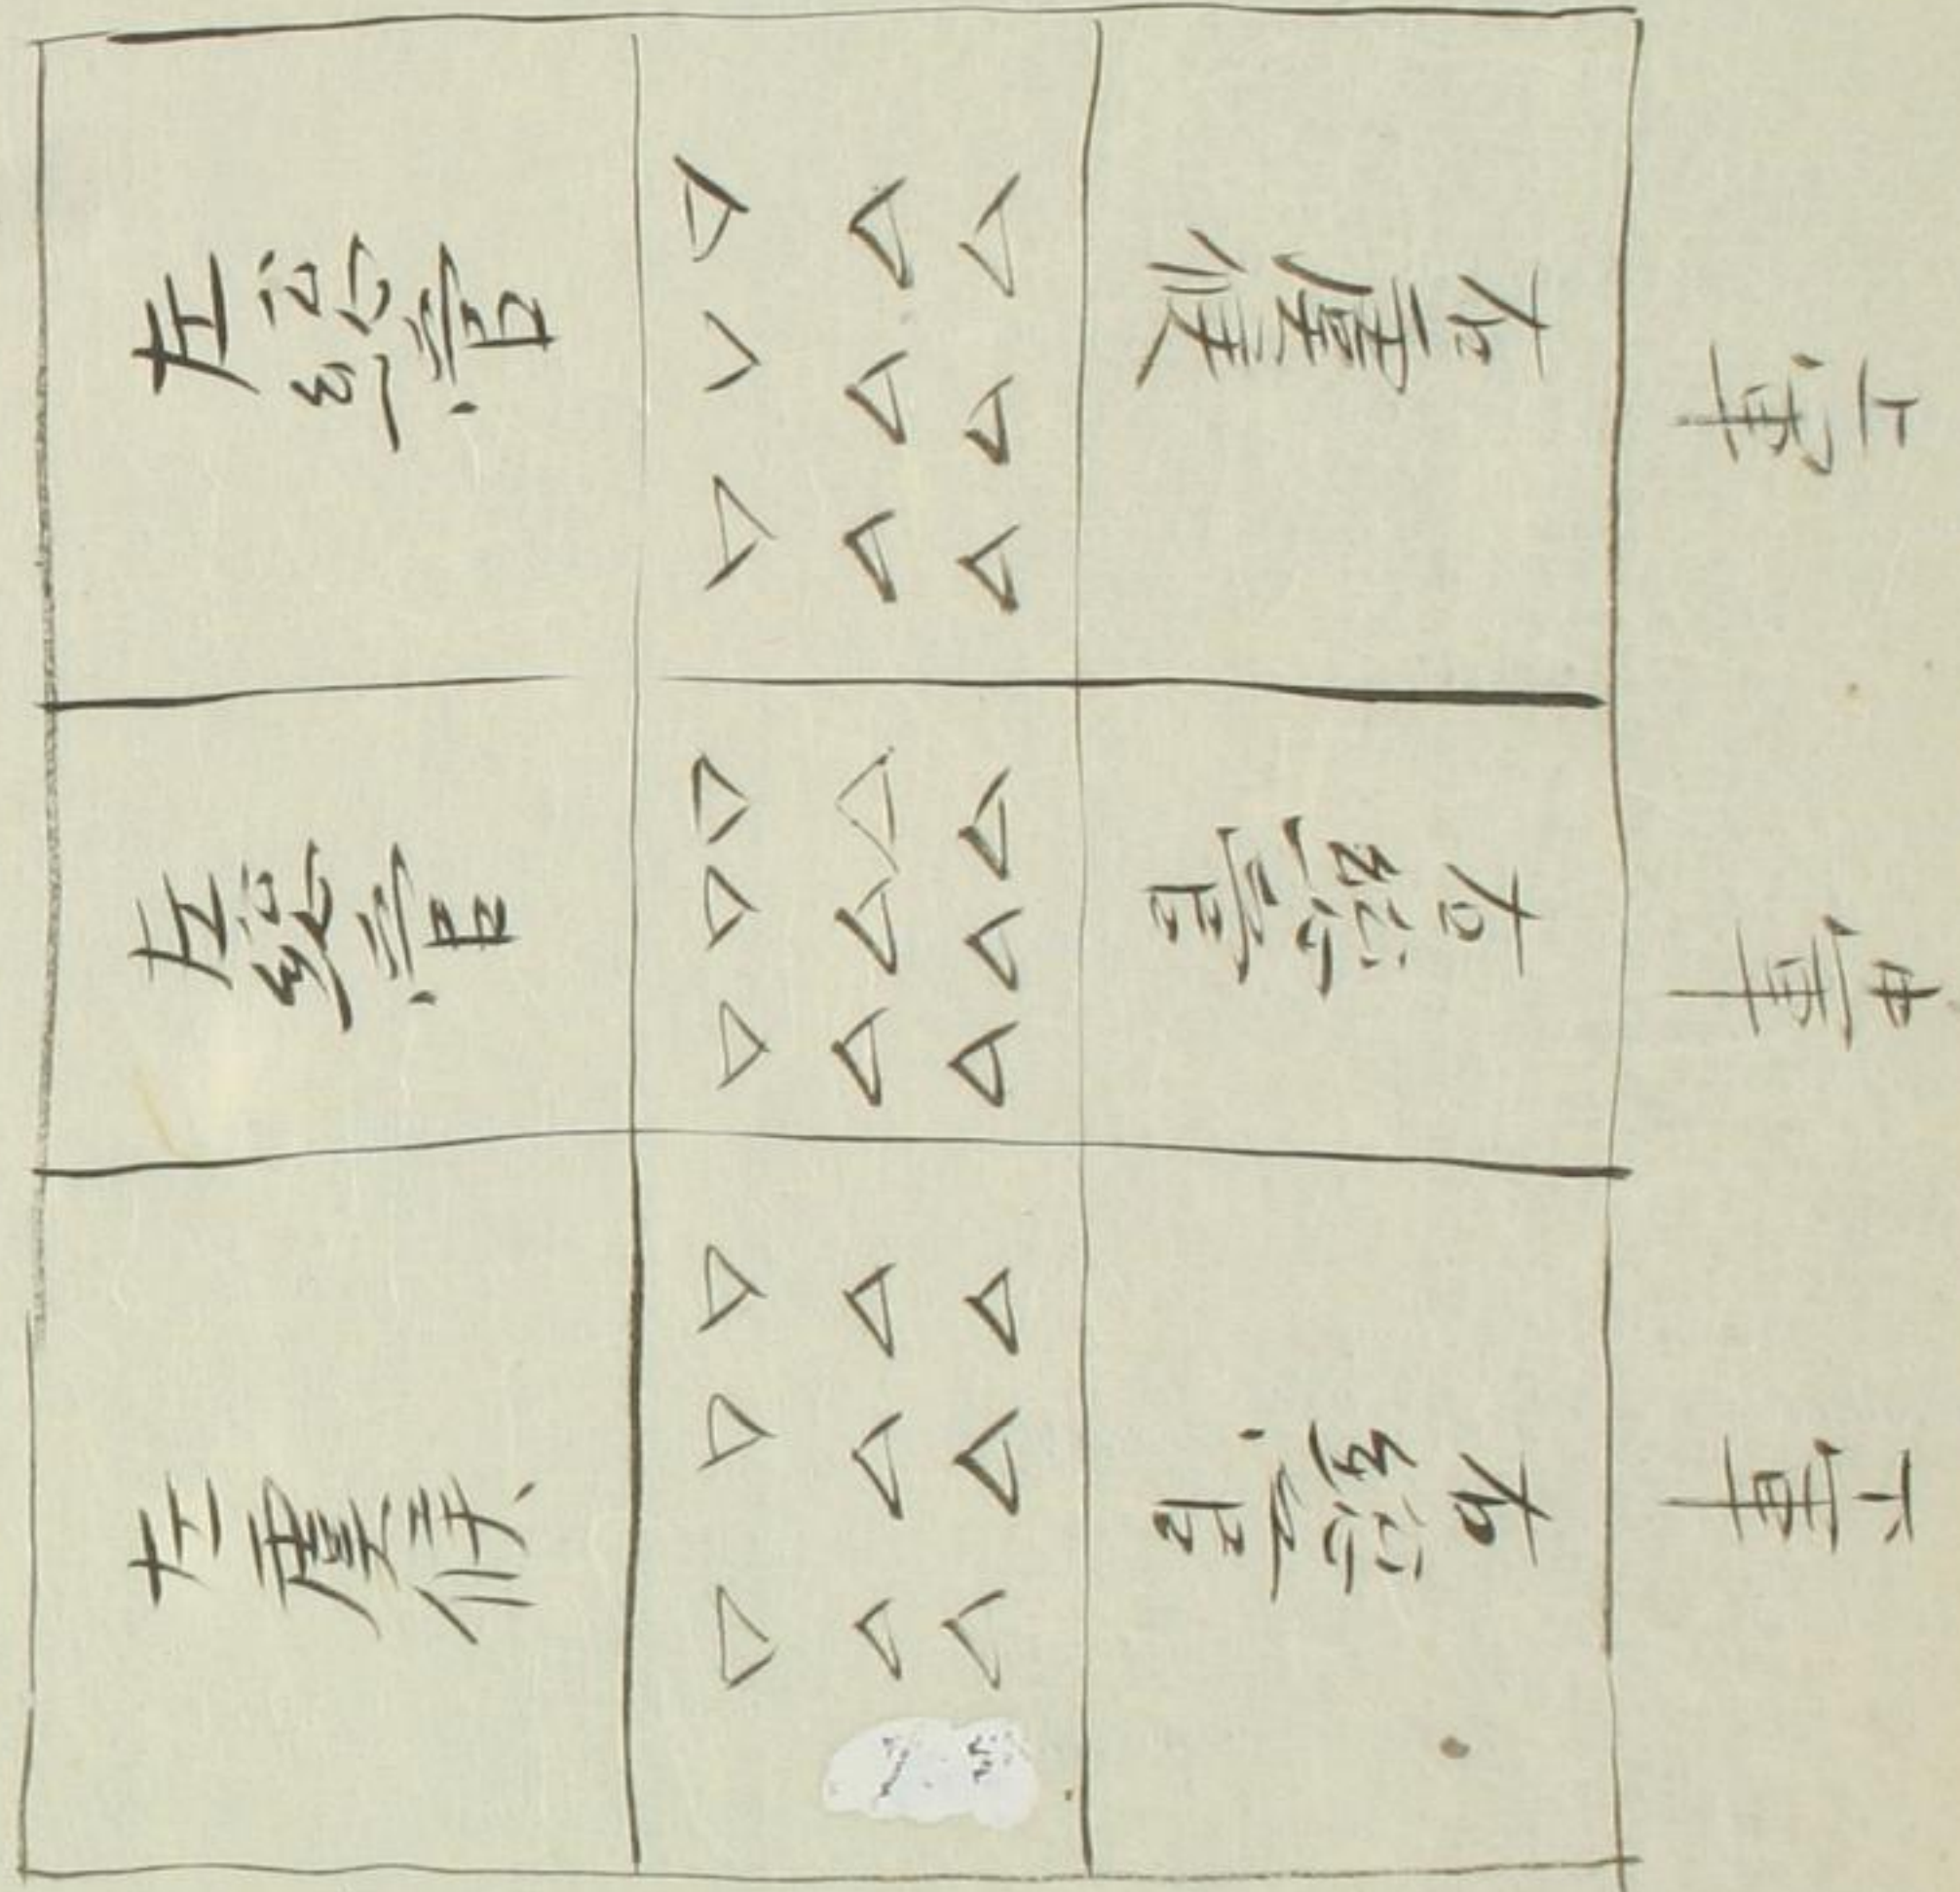 上軍
中軍
下軍
右虞候
右總管
右總管
左總管
左總管
左虞候